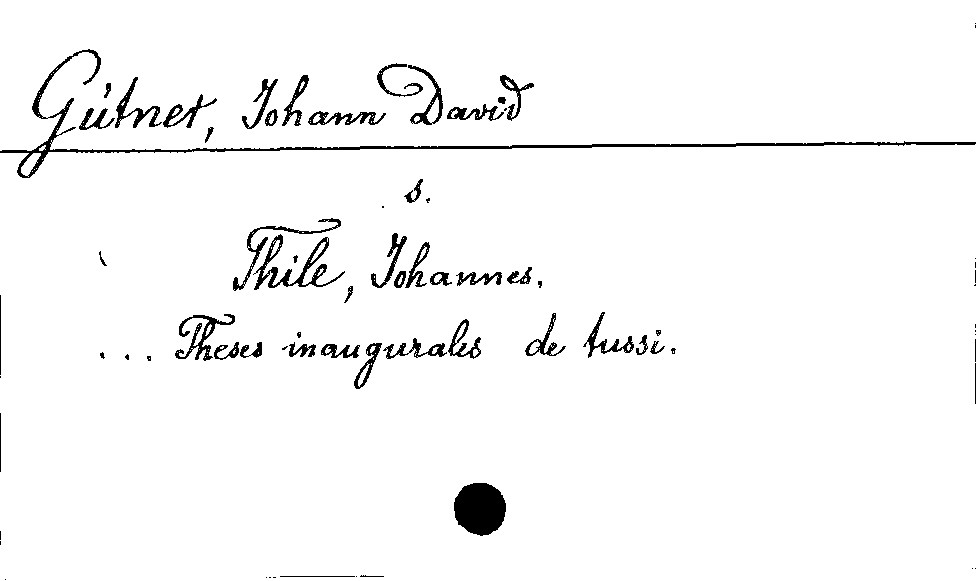 Gütner, Johann David
s.
Thile, Johannes.
... Theses inaugurales de tussi.